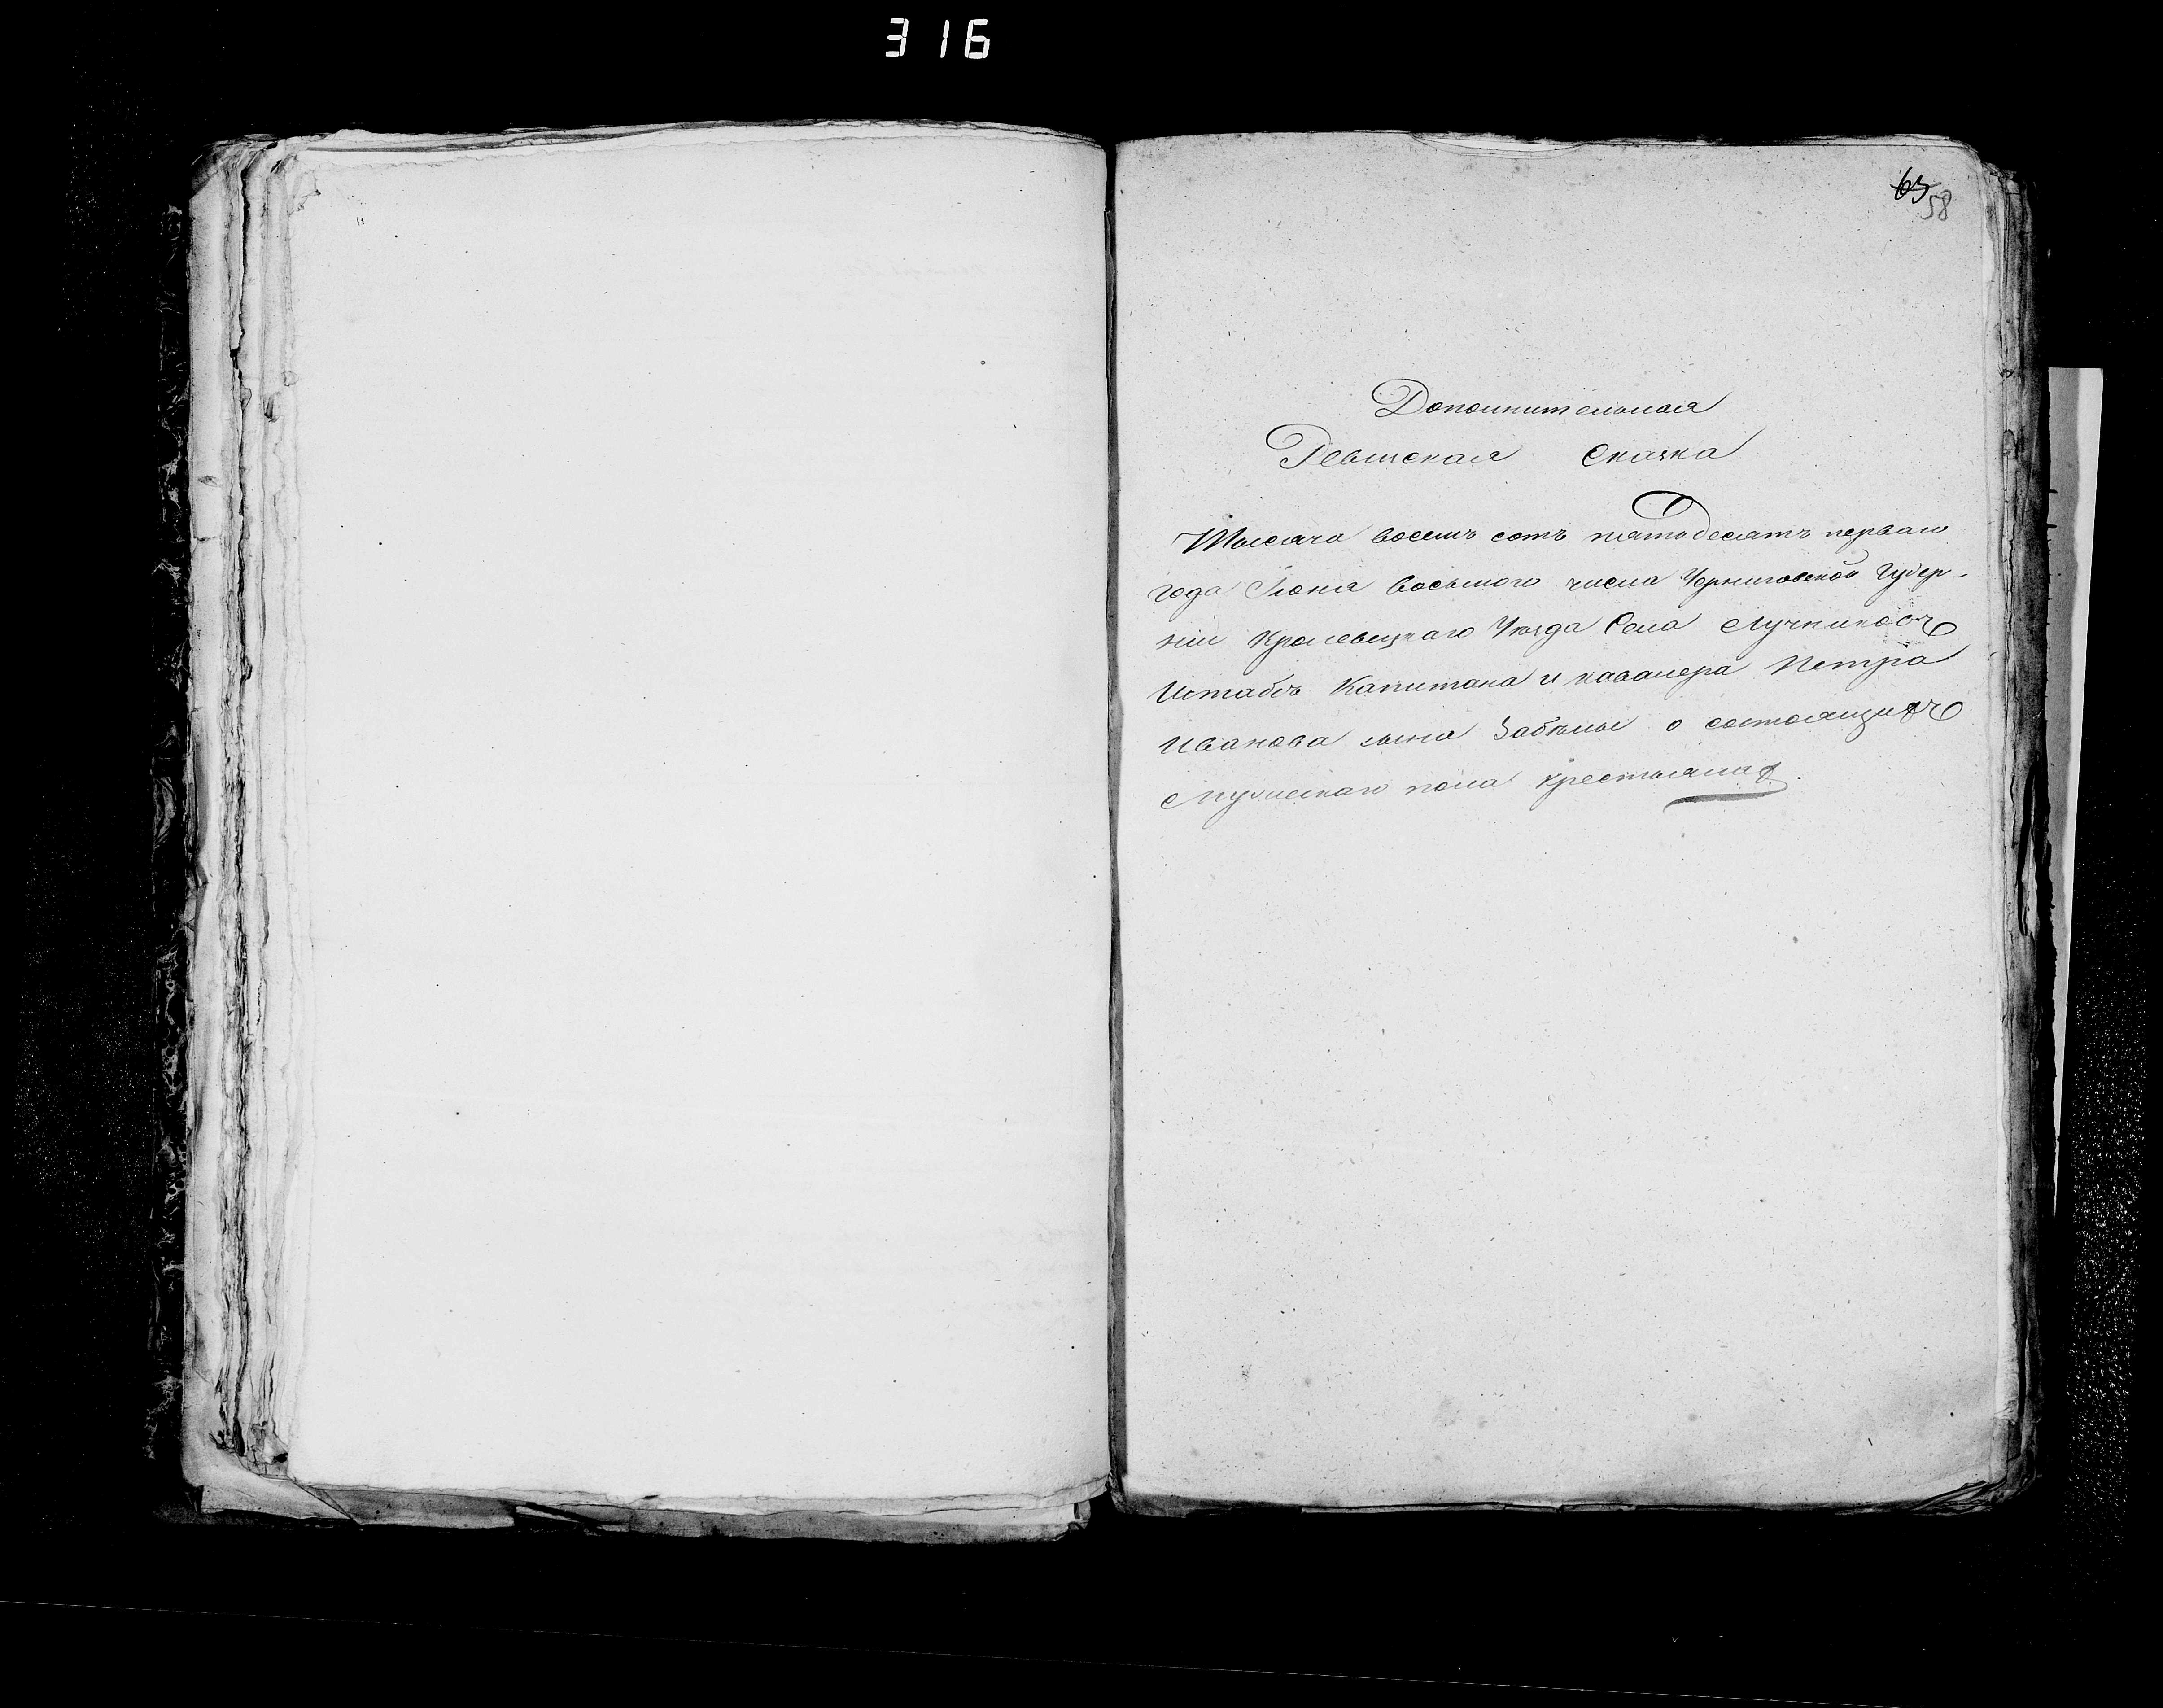 316
63
58
Дополнительная
Ревизская Сказка
Тысяча восемь сотъ пятьдесятъ перваго
года Іюня восьмого числа Черниговской Губер-
ніи Кролевецкаго Уѣзда Села Лучниковъ
Штабсъ Капитана и кавалера Петра
Иванова сына Забѣлы о состоящихъ
Мужескаго пола крестьянах